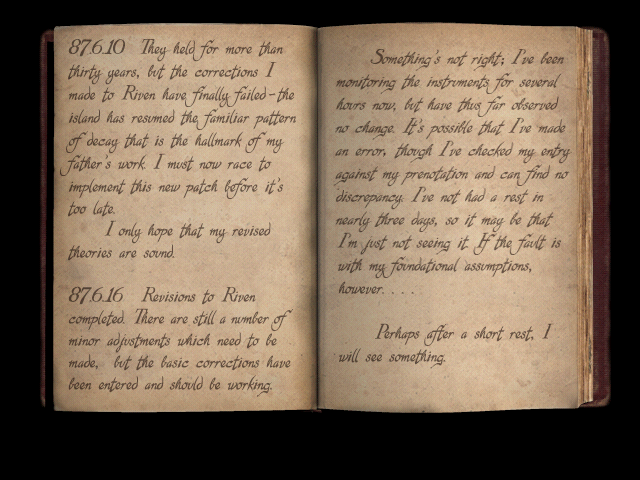 87.6.10 They held for more than
thirty years, but the corrections I
made to Riven have finally failed-the
island has resumed the familiar pattern
of decay that is the hallmark of my
father's work. I must now race to
implement this new patch before it's
too late.
I only hope that my revised
theories are sound.
87.6.16 Revisions to Riven
completed. There are still a number of
minor adjustments which need to be
made, but the basic corrections have
been entered and should be working.
Something's not right; I've been
monitoring the instruments for several
hours now, but have thus far observed
no change. It's possible that I've made
an error, though I've checked my entry
against my prenotation and can find no
discrepancy. I've not had a rest in
nearly three days, so it may be that
I'm just not seeing it. If the fault is
with my foundational assumptions,
however. . . .
Perhaps after a short rest, I
will see something.